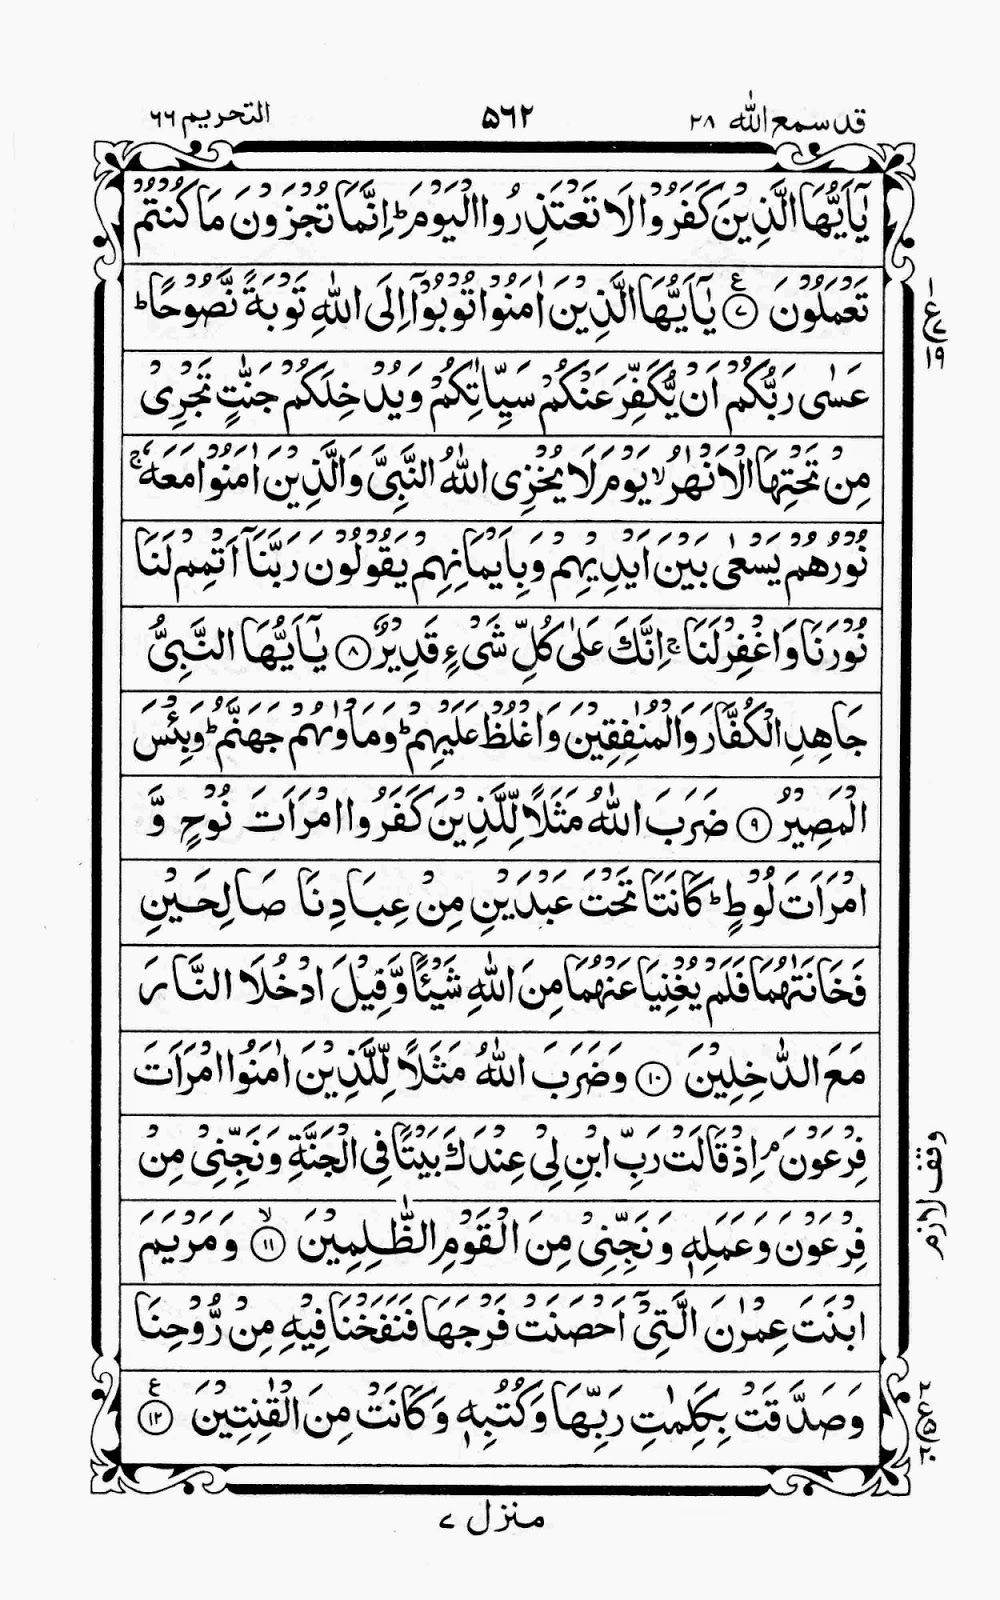 التحریم ٦٦ ۵٦۲ قد سمع اللّٰه ۲۸
یٰۤاَیُّهَا الَّذِیْنَ كَفَرُوْا لَا تَعْتَذِرُوا الْیَوْمَ ؕ اِنَّمَا تُجْزَوْنَ مَا كُنْتُمْ
تَعْمَلُوْنَ ۧ ﴿۷﴾ یٰۤاَیُّهَا الَّذِیْنَ اٰمَنُوْا تُوْبُوْۤا اِلَی اللّٰهِ تَوْبَةً نَّصُوْحًا ؕ
ع ۷ ۱۹
عَسٰی رَبُّكُمْ اَنْ یُّكَفِّرَ عَنْكُمْ سَیِّاٰتِكُمْ وَیُدْخِلَكُمْ جَنّٰتٍ تَجْرِیْ
مِنْ تَحْتِهَا الْاَنْهٰرُ ۙ یَوْمَ لَا یُخْزِی اللّٰهُ النَّبِیَّ وَالَّذِیْنَ اٰمَنُوْا مَعَهٗ ۚ
نُوْرُهُمْ یَسْعٰی بَیْنَ اَیْدِیْهِمْ وَبِاَیْمَانِهِمْ یَقُوْلُوْنَ رَبَّنَاۤ اَتْمِمْ لَنَا
نُوْرَنَا وَاغْفِرْ لَنَا ۚ اِنَّكَ عَلٰی كُلِّ شَیْءٍ قَدِیْرٌ ﴿۸﴾ یٰۤاَیُّهَا النَّبِیُّ
جَاهِدِ الْكُفَّارَ وَالْمُنٰفِقِیْنَ وَاغْلُظْ عَلَیْهِمْ ؕ وَمَاْوٰىهُمْ جَهَنَّمُ ؕ وَبِئْسَ
الْمَصِیْرُ ﴿۹﴾ ضَرَبَ اللّٰهُ مَثَلًا لِّلَّذِیْنَ كَفَرُوا امْرَاَتَ نُوْحٍ وَّ
امْرَاَتَ لُوْطٍ ؕ كَانَتَا تَحْتَ عَبْدَیْنِ مِنْ عِبَادِنَا صَالِحَیْنِ
فَخَانَتٰهُمَا فَلَمْ یُغْنِیَا عَنْهُمَا مِنَ اللّٰهِ شَیْـًٔا وَّقِیْلَ ادْخُلَا النَّارَ
مَعَ الدّٰخِلِیْنَ ﴿۱۰﴾ وَضَرَبَ اللّٰهُ مَثَلًا لِّلَّذِیْنَ اٰمَنُوا امْرَاَتَ
فِرْعَوْنَ ۘ اِذْ قَالَتْ رَبِّ ابْنِ لِیْ عِنْدَكَ بَیْتًا فِی الْجَنَّةِ وَنَجِّنِیْ مِنْ
وقف لازم
فِرْعَوْنَ وَعَمَلِهٖ وَنَجِّنِیْ مِنَ الْقَوْمِ الظّٰلِمِیْنَ ۙ ﴿۱۱﴾ وَمَرْیَمَ
ابْنَتَ عِمْرٰنَ الَّتِیْۤ اَحْصَنَتْ فَرْجَهَا فَنَفَخْنَا فِیْهِ مِنْ رُّوْحِنَا
وَصَدَّقَتْ بِكَلِمٰتِ رَبِّهَا وَكُتُبِهٖ وَكَانَتْ مِنَ الْقٰنِتِیْنَ ۧ ﴿۱۲﴾
۲ ع ۵ ۲۰
منزل ۷